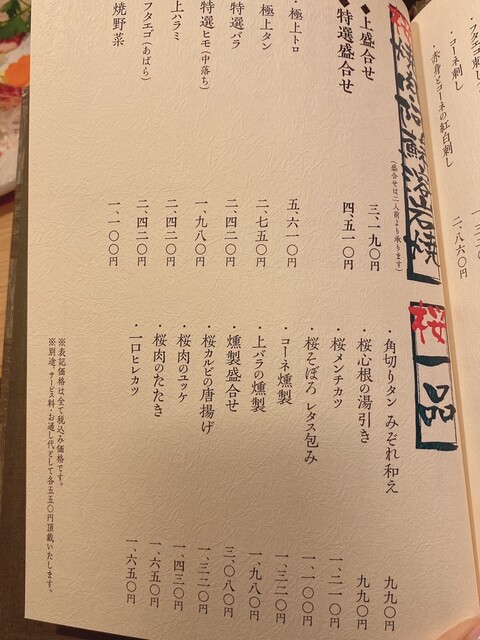 フタエゴ刺し
・コーネ刺し
赤身とコーネの紅白刺し
二、八六〇円
桜焼肉阿蘇溶岩焼
(盛合せは二人前より承ります)
◆上盛合せ 三、一九〇円
◆特選盛合せ 四、五一〇円
・極上トロ 五、六一〇円
極上タン 二、七五〇円
特選バラ 二、四二〇円
特選ヒモ(中落ち) 一、九八〇円
上ハラミ 二、四二〇円
フタエゴ(あばら) 二、四二〇円
焼野菜 一、一〇〇円
桜一品
・角切りタン みぞれ和え 九九〇円
・桜心根の湯引き 九九〇円
・桜メンチカツ 一、二一〇円
・桜そぼろ レタス包み 一、一〇〇円
・コーネ燻製 一、三二〇円
・上バラの燻製 一、九八〇円
・燻製盛合せ 三、〇八〇円
・桜カルビの唐揚げ 一、三二〇円
・桜肉のユッケ 一、四三〇円
・桜肉のたたき 一、六五〇円
・一口ヒレカツ 一、六五〇円
※表記価格は全て税込み価格です。
※別途、サービス料・お通し代として各五五〇円頂戴いたします。